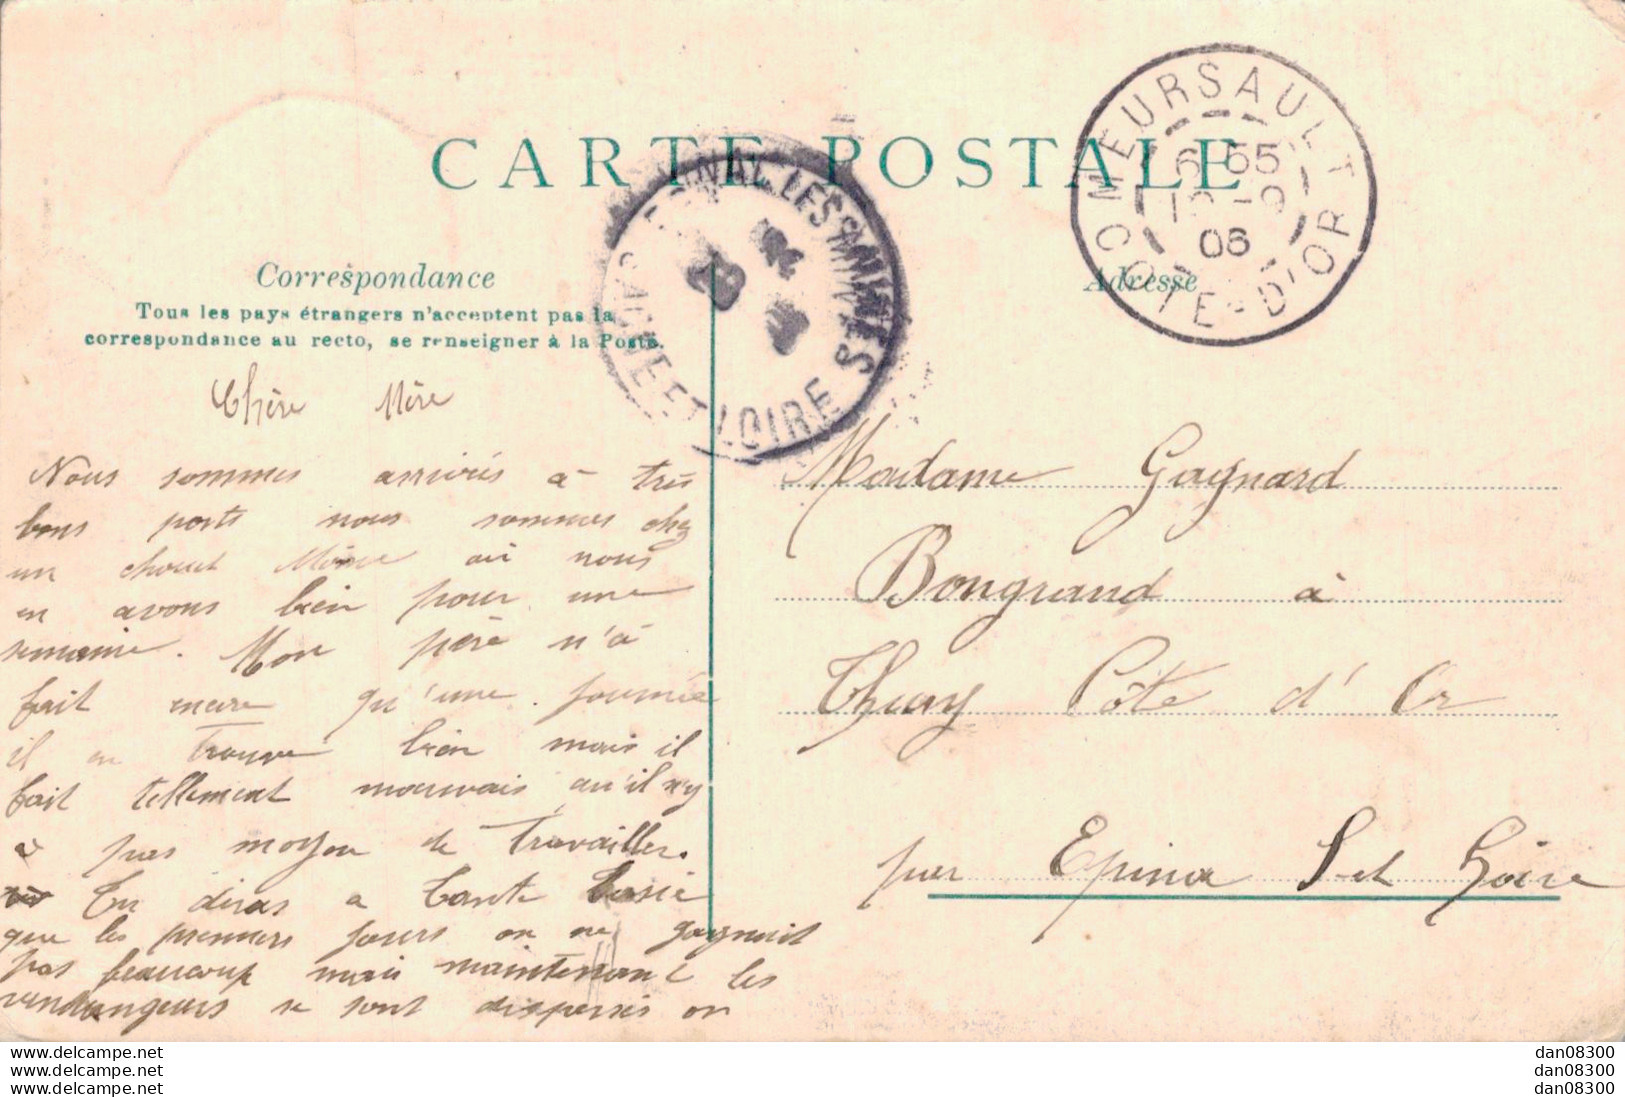 CARTE POSTALE
Correspondance
Tous les pays étrangers n'acceptent pas la
correspondance au recto, se renseigner à la Poste.
Adresse
MEURSAULT
6 55
06
COTE-D'OR
LES MINES
SAONE ET LOIRE
Chère Mère
Nous sommes arrivés à très
bons ports nous sommes chez
un où nous
en avons bien pour une
semaine. Mon père n'à
fait encore qu'une journée
il en trouve bien mais il
fait tellement mauvais qu'il n'y
a pas moyen de travailler.
Tu diras a tante
que les premiers jours on ne gagnait
pas beaucoup mais maintenant les
vendangeurs se sont dispersés on
Madame Gagnard
Bongrand à
Thury Côte d'Or
par Epinac S-et Loire
www.delcampe.net
www.delcampe.net
www.delcampe.net
dan08300
dan08300
dan08300